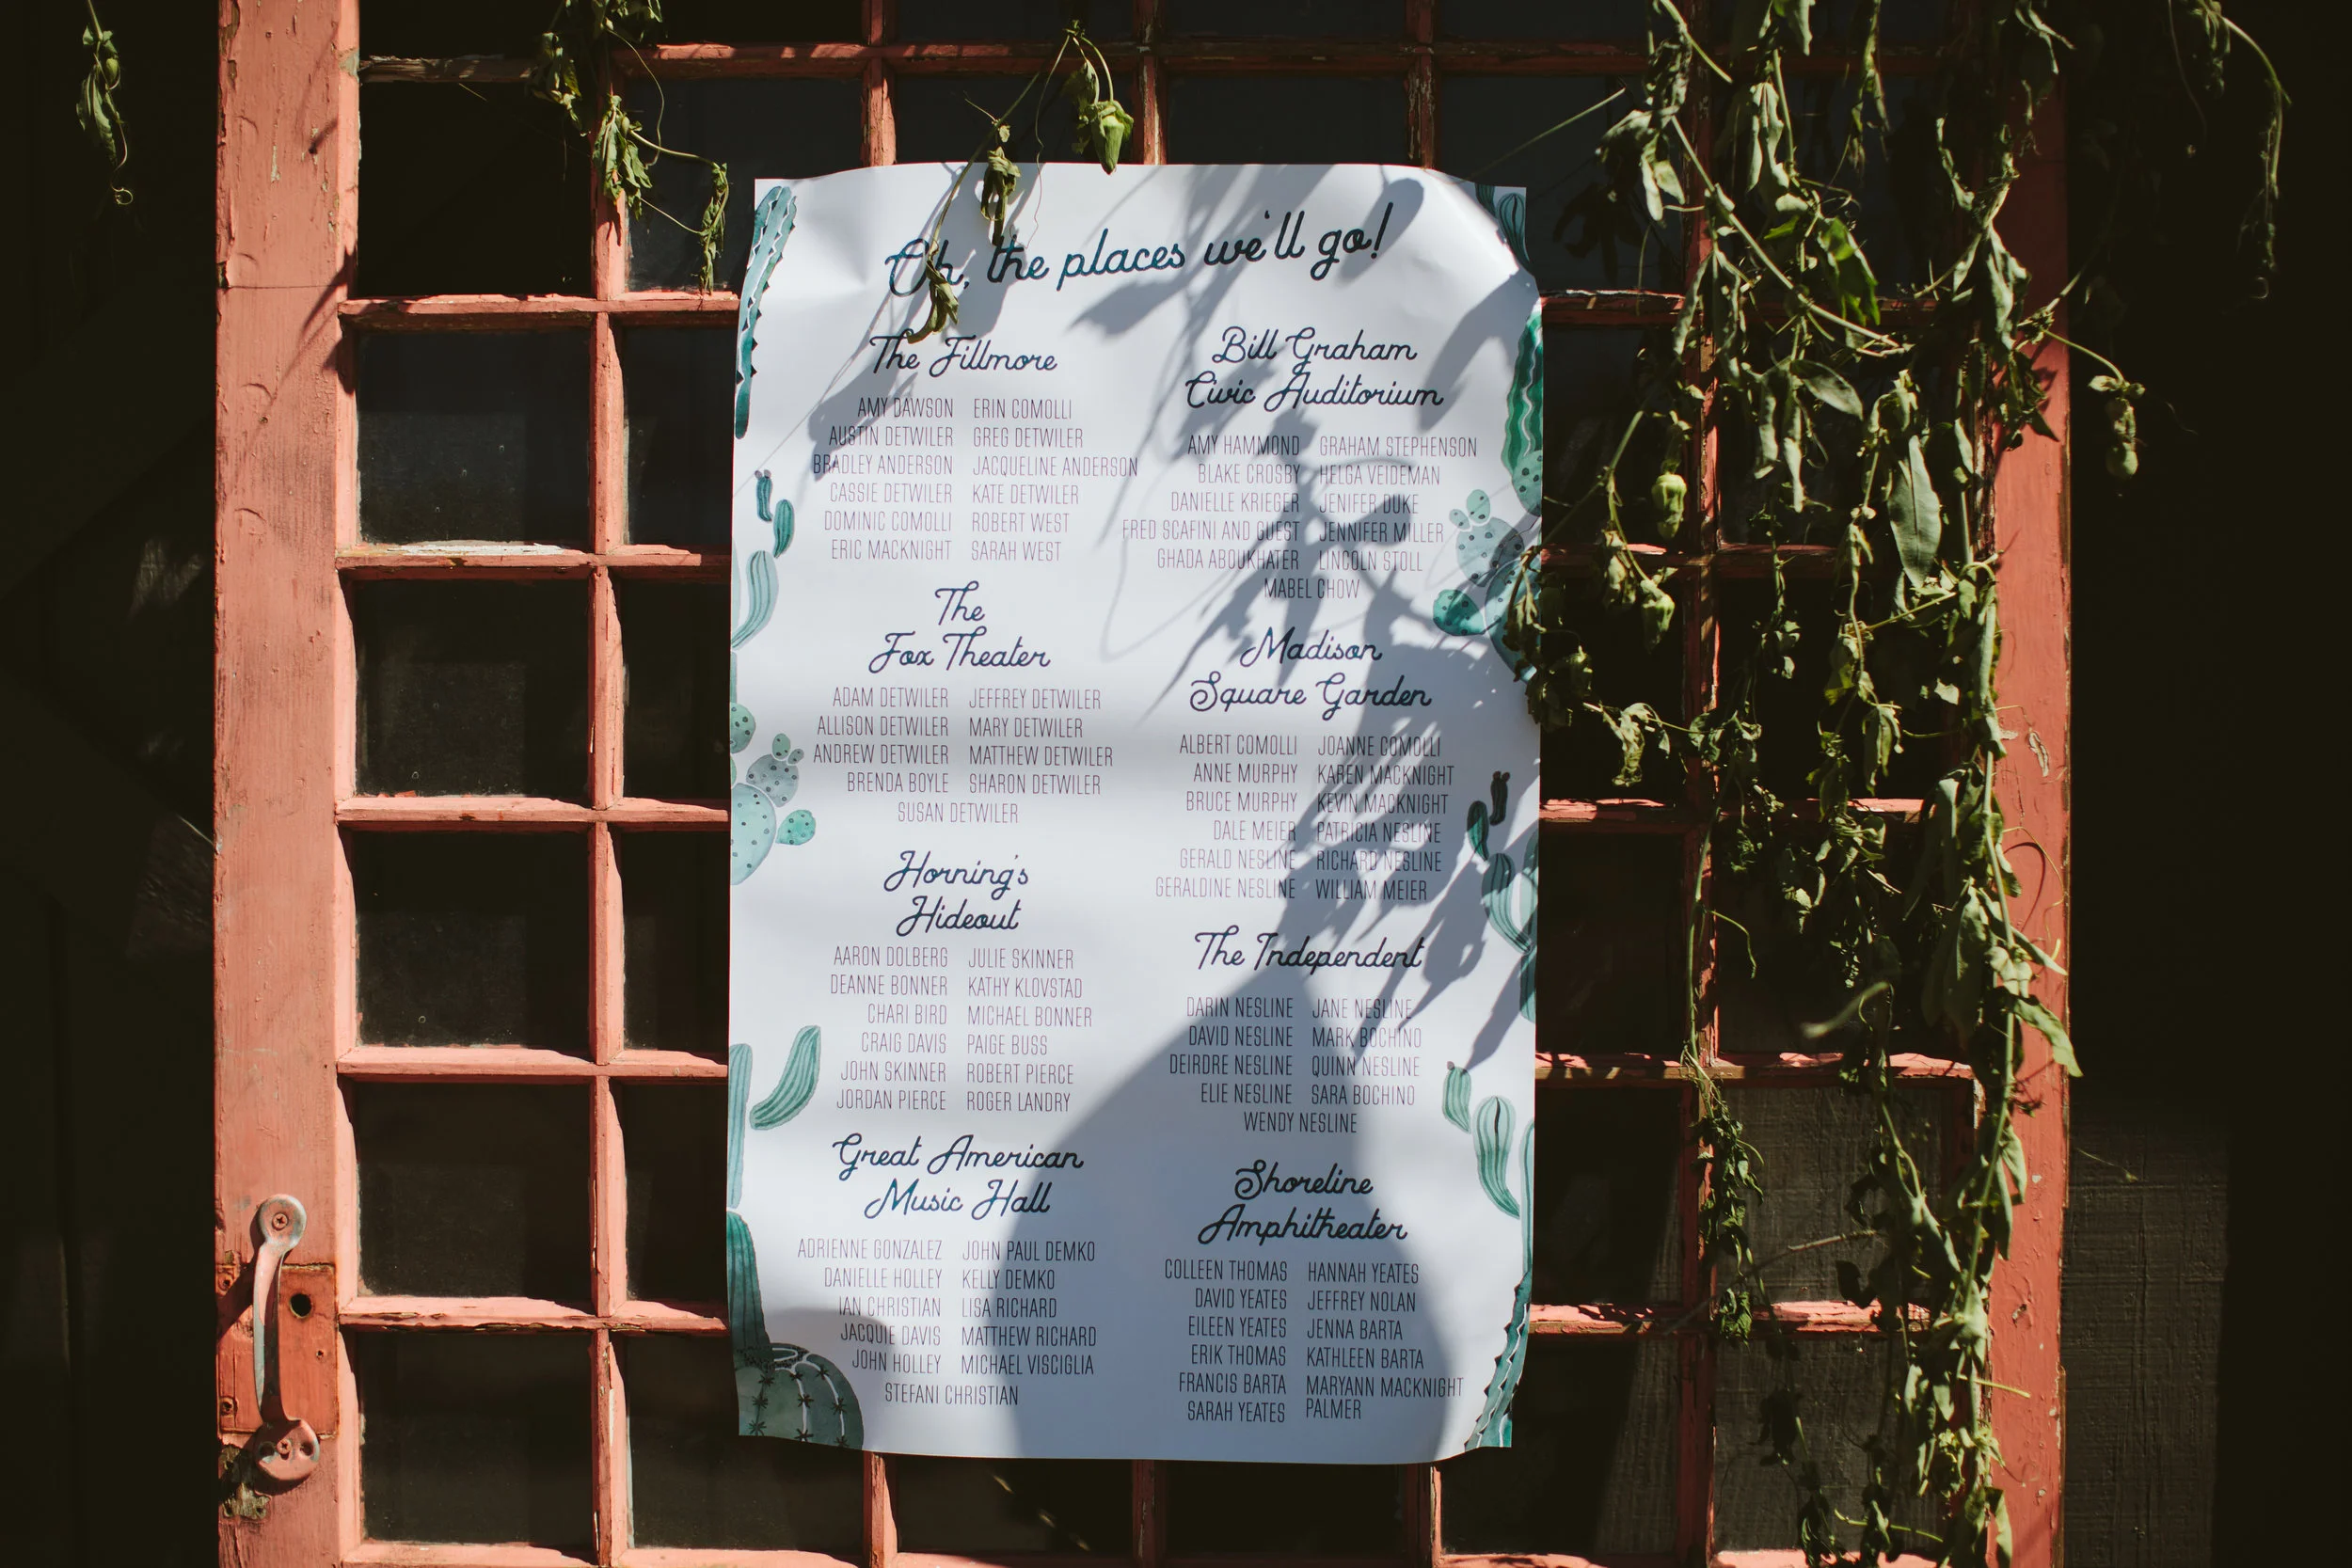 Oh, the places we'll go!
The Fillmore
AMY DAWSON ERIN COMOLLI
AUSTIN DETWILER GREG DETWILER
BRADLEY ANDERSON JACQUELINE ANDERSON
CASSIE DETWILER KATE DETWILER
DOMINIC COMOLLI ROBERT WEST
ERIC MACKNIGHT SARAH WEST
The
Fox Theater
ADAM DETWILER JEFFREY DETWILER
ALLISON DETWILER MARY DETWILER
ANDREW DETWILER MATTHEW DETWILER
BRENDA BOYLE SHARON DETWILER
SUSAN DETWILER
Horning's
Hideout
AARON DOLBERG JULIE SKINNER
DEANNE BONNER KATHY KLOVSTAD
CHARI BIRD MICHAEL BONNER
CRAIG DAVIS PAIGE BUSS
JOHN SKINNER ROBERT PIERCE
JORDAN PIERCE ROGER LANDRY
Great American
Music Hall
ADRIENNE GONZALEZ JOHN PAUL DEMKO
DANIELLE HOLLEY KELLY DEMKO
IAN CHRISTIAN LISA RICHARD
JACQUIE DAVIS MATTHEW RICHARD
JOHN HOLLEY MICHAEL VISCIGLIA
STEFANI CHRISTIAN
Bill Graham
Civic Auditorium
AMY HAMMOND GRAHAM STEPHENSON
BLAKE CROSBY HELGA VEIDEMAN
DANIELLE KRIEGER JENIFER DUKE
FRED SCAFINI AND GUEST JENNIFER MILLER
GHADA ABOUKHATER LINCOLN STOLL
MABEL CHOW
Madison
Square Garden
ALBERT COMOLLI JOANNE COMOLLI
ANNE MURPHY KAREN MACKNIGHT
BRUCE MURPHY KEVIN MACKNIGHT
DALE MEIER PATRICIA NESLINE
GERALD NESLINE RICHARD NESLINE
GERALDINE NESLINE WILLIAM MEIER
The Independent
DARIN NESLINE JANE NESLINE
DAVID NESLINE MARK BOCHINO
DEIRDRE NESLINE QUINN NESLINE
ELIE NESLINE SARA BOCHINO
WENDY NESLINE
Shoreline
Amphitheater
COLLEEN THOMAS HANNAH YEATES
DAVID YEATES JEFFREY NOLAN
EILEEN YEATES JENNA BARTA
ERIK THOMAS KATHLEEN BARTA
FRANCIS BARTA MARYANN MACKNIGHT
SARAH YEATES PALMER